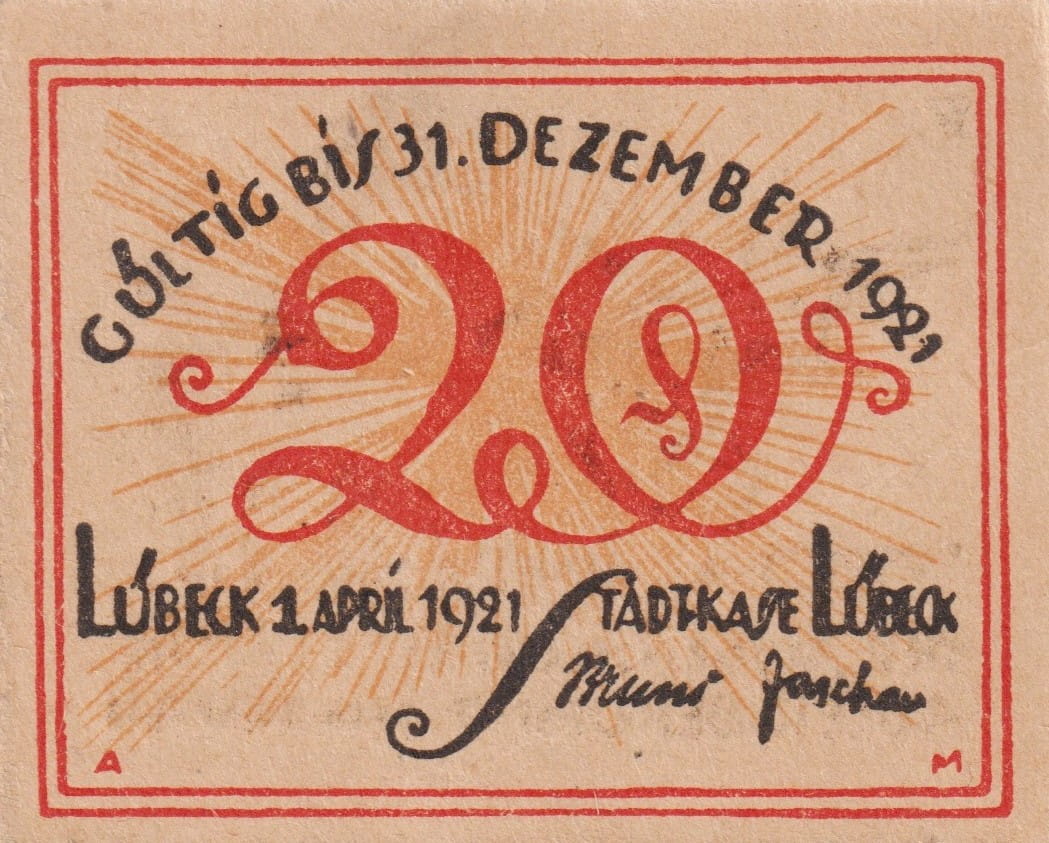 GÜLTIG BIS 31. DEZEMBER 1921
20
LÜBECK 1. APRIL 1921 STADTKASSE LÜBECK
Bruns Jaschau
A M